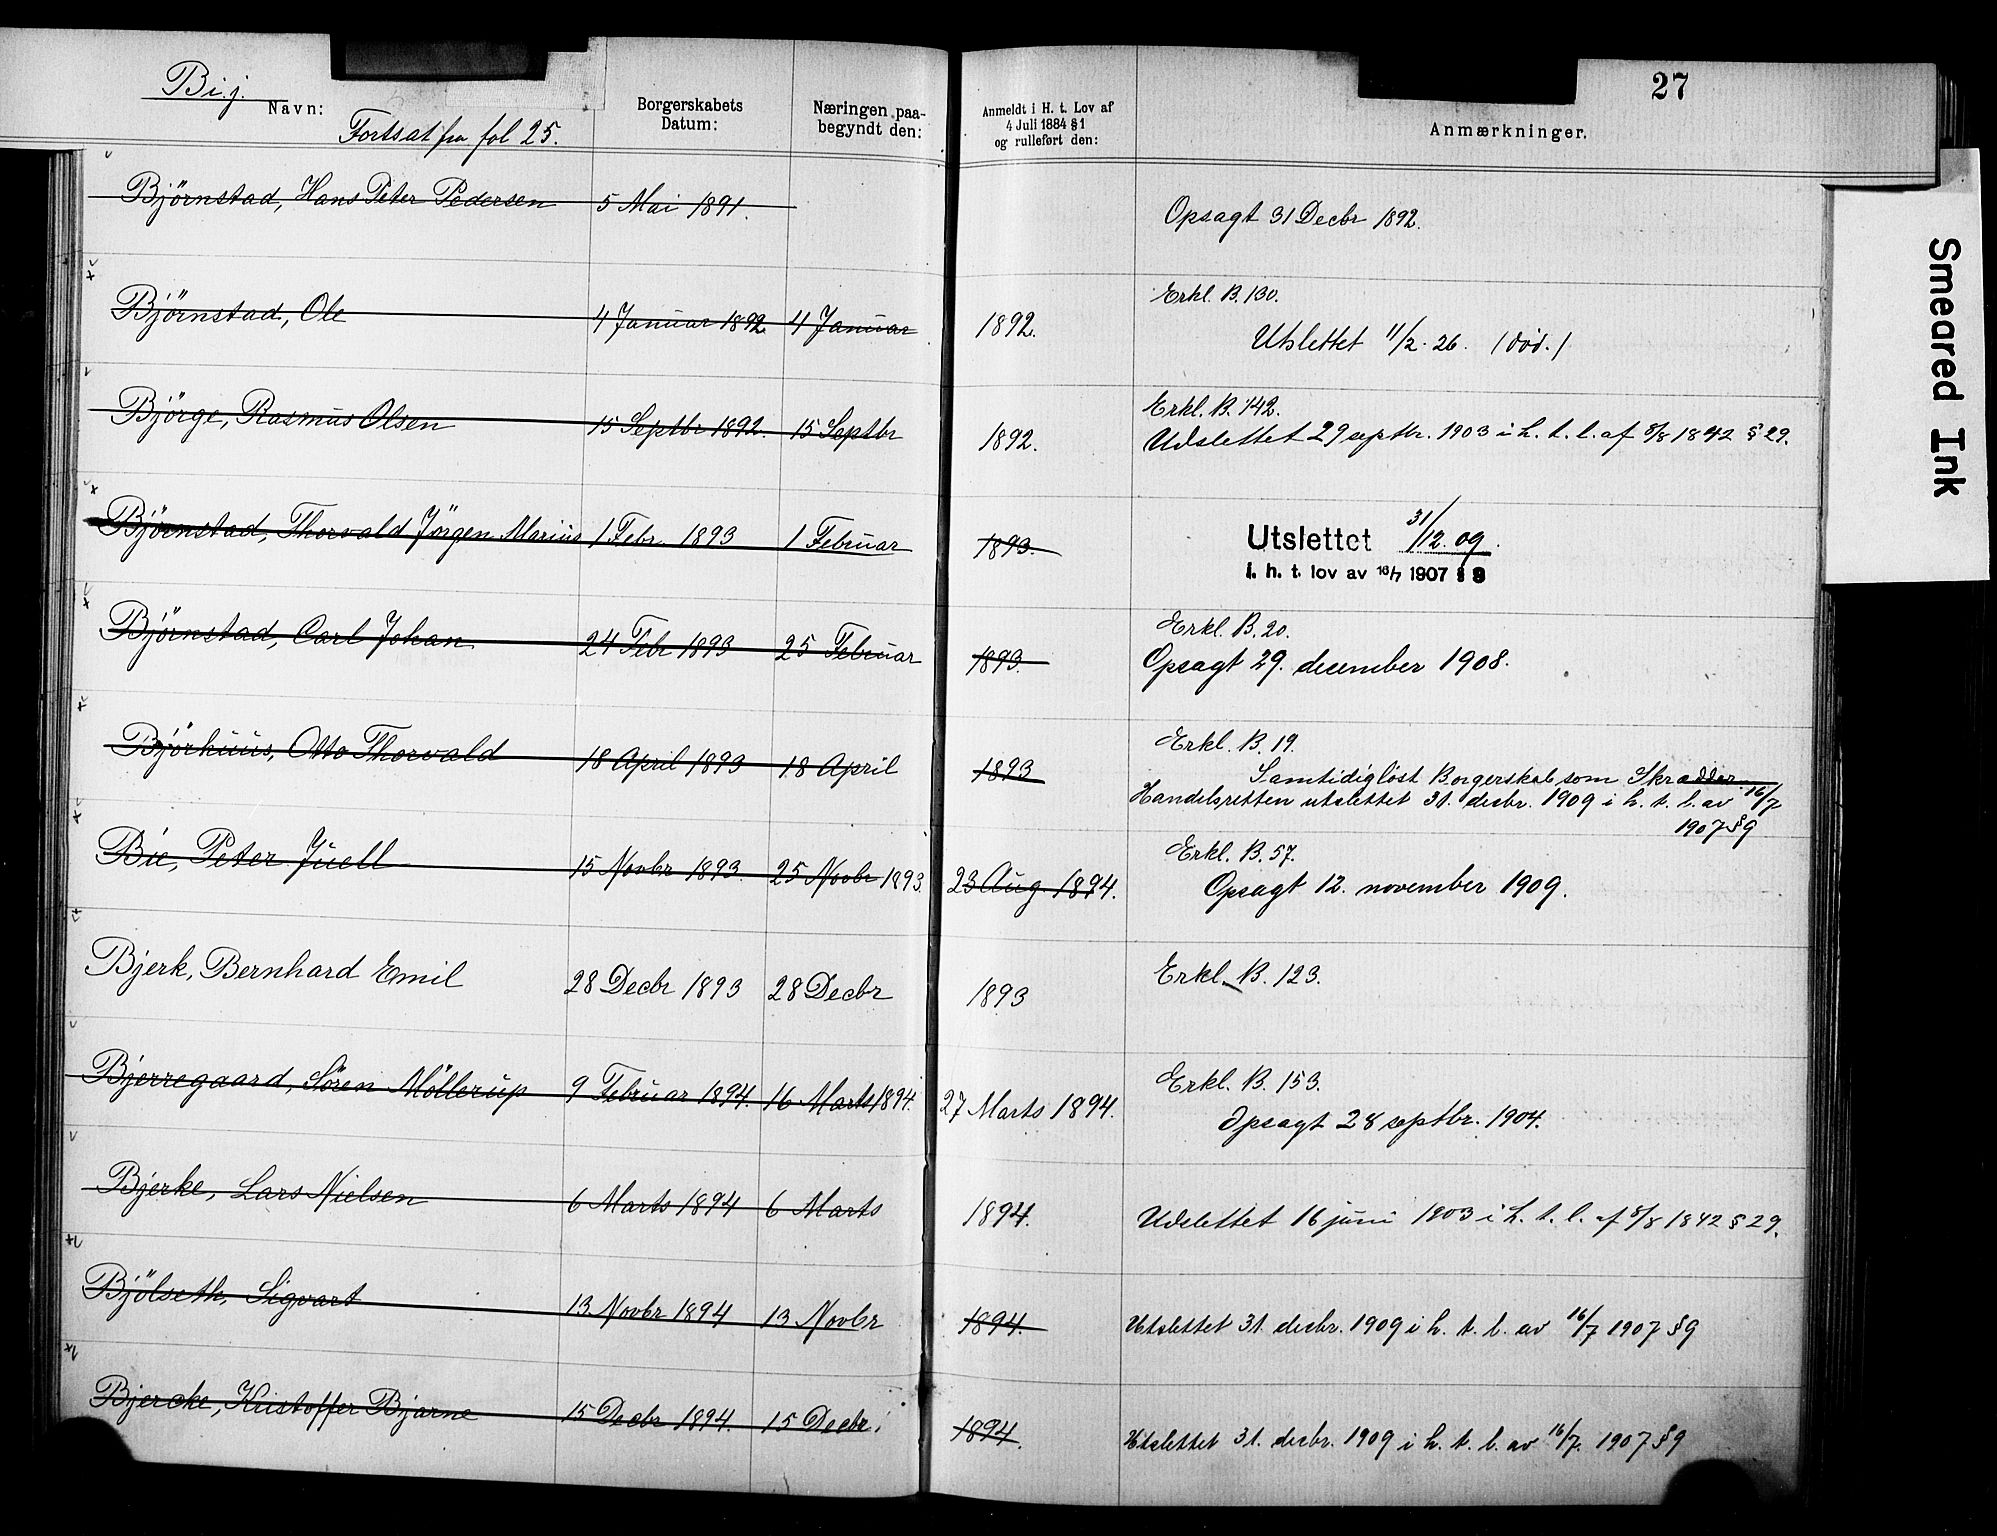 Bi.j.
27
Navn:
Fortsat fra fol 25.
Borgerskabets Datum:
Næringen paa-begyndt den:
Anmeldt i H. t. Lov af 4 Juli 1884 § 1 og rulleført den:
Anmærkninger.
Smeared Ink
Björnstad, Hans Peter Pedersen 5 Mai 1891. Opsagt 31 Decbr 1892.
Erkl. B. 130.
Björnstad, Ole 4 Januar 1892 4 Januar 1892. Utslettet 11/2. 26. (död.)
Erkl. B. 142.
Björge, Rasmus Olsen 15 Septbr 1892. 15 Septbr 1892. Udslettet 29 septbr. 1903 i h. t. l. af 8/8 1842 § 29.
Björnstad, Thorvald Jörgen Marius 1 Febr. 1893 1 Februar 1893. Utslettet 31/12. 09.
i. h. t. lov av 16/7 1907 § 9
Erkl. B. 20.
Björnstad, Carl Johan 24 Febr 1893 25 Februar 1893. Opsagt 29. december 1908.
Erkl. B. 19.
Björhuus, Otto Thorvald 18 April 1893 18 April 1893 Samtidig löst Borgerskab som Skrædder.
Handelsretten utslettet 31. decbr. 1909 i h. t. l. av 16/7
1907 § 9
Erkl. B. 57.
Bie, Peter Juell 15 Novbr 1893. 25 Novbr 1893. 23 Aug. 1894. Opsagt 12. november 1909.
Bjerk, Bernhard Emil 28 Decbr 1893 28 Decbr 1893 Erkl. B. 123.
Erkl. B. 153.
Bjerregaard, Sören Möllerup 9 Februar 1894. 16 Marts 1894. 27 Marts 1894. Opsagt 28 septbr. 1904.
Bjerke, Lars Nielsen 6 Marts 1894 6 Marts 1894. Udslettet 16 juni 1903 i h. t. l. af 8/8 1842 § 29.
Bjölseth, Sigvart 13 Novbr 1894 13 Novbr 1894. Utslettet 31. decbr. 1909 i h. t. l. av 16/7 1907 § 9
Bjercke, Kristoffer Bjarne 15 Decbr 1894. 15 Decbr. 1894. Utslettet 31. decbr. 1909 i h. t. l. av 16/7. 1907 § 9